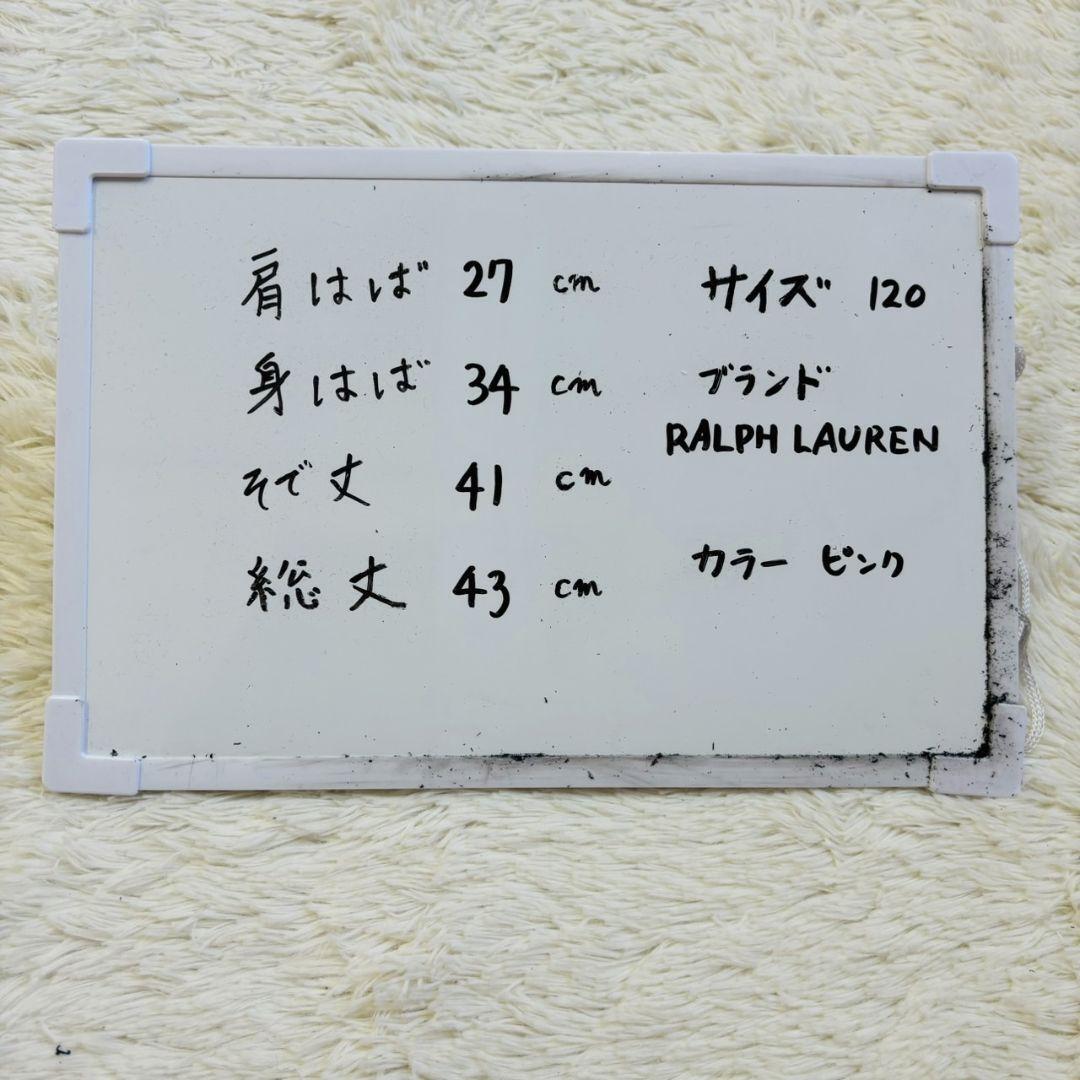 肩はば 27 cm
身はば 34 cm
そで丈 41 cm
総丈 43 cm
サイズ 120
ブランド
RALPH LAUREN
カラー ピンク